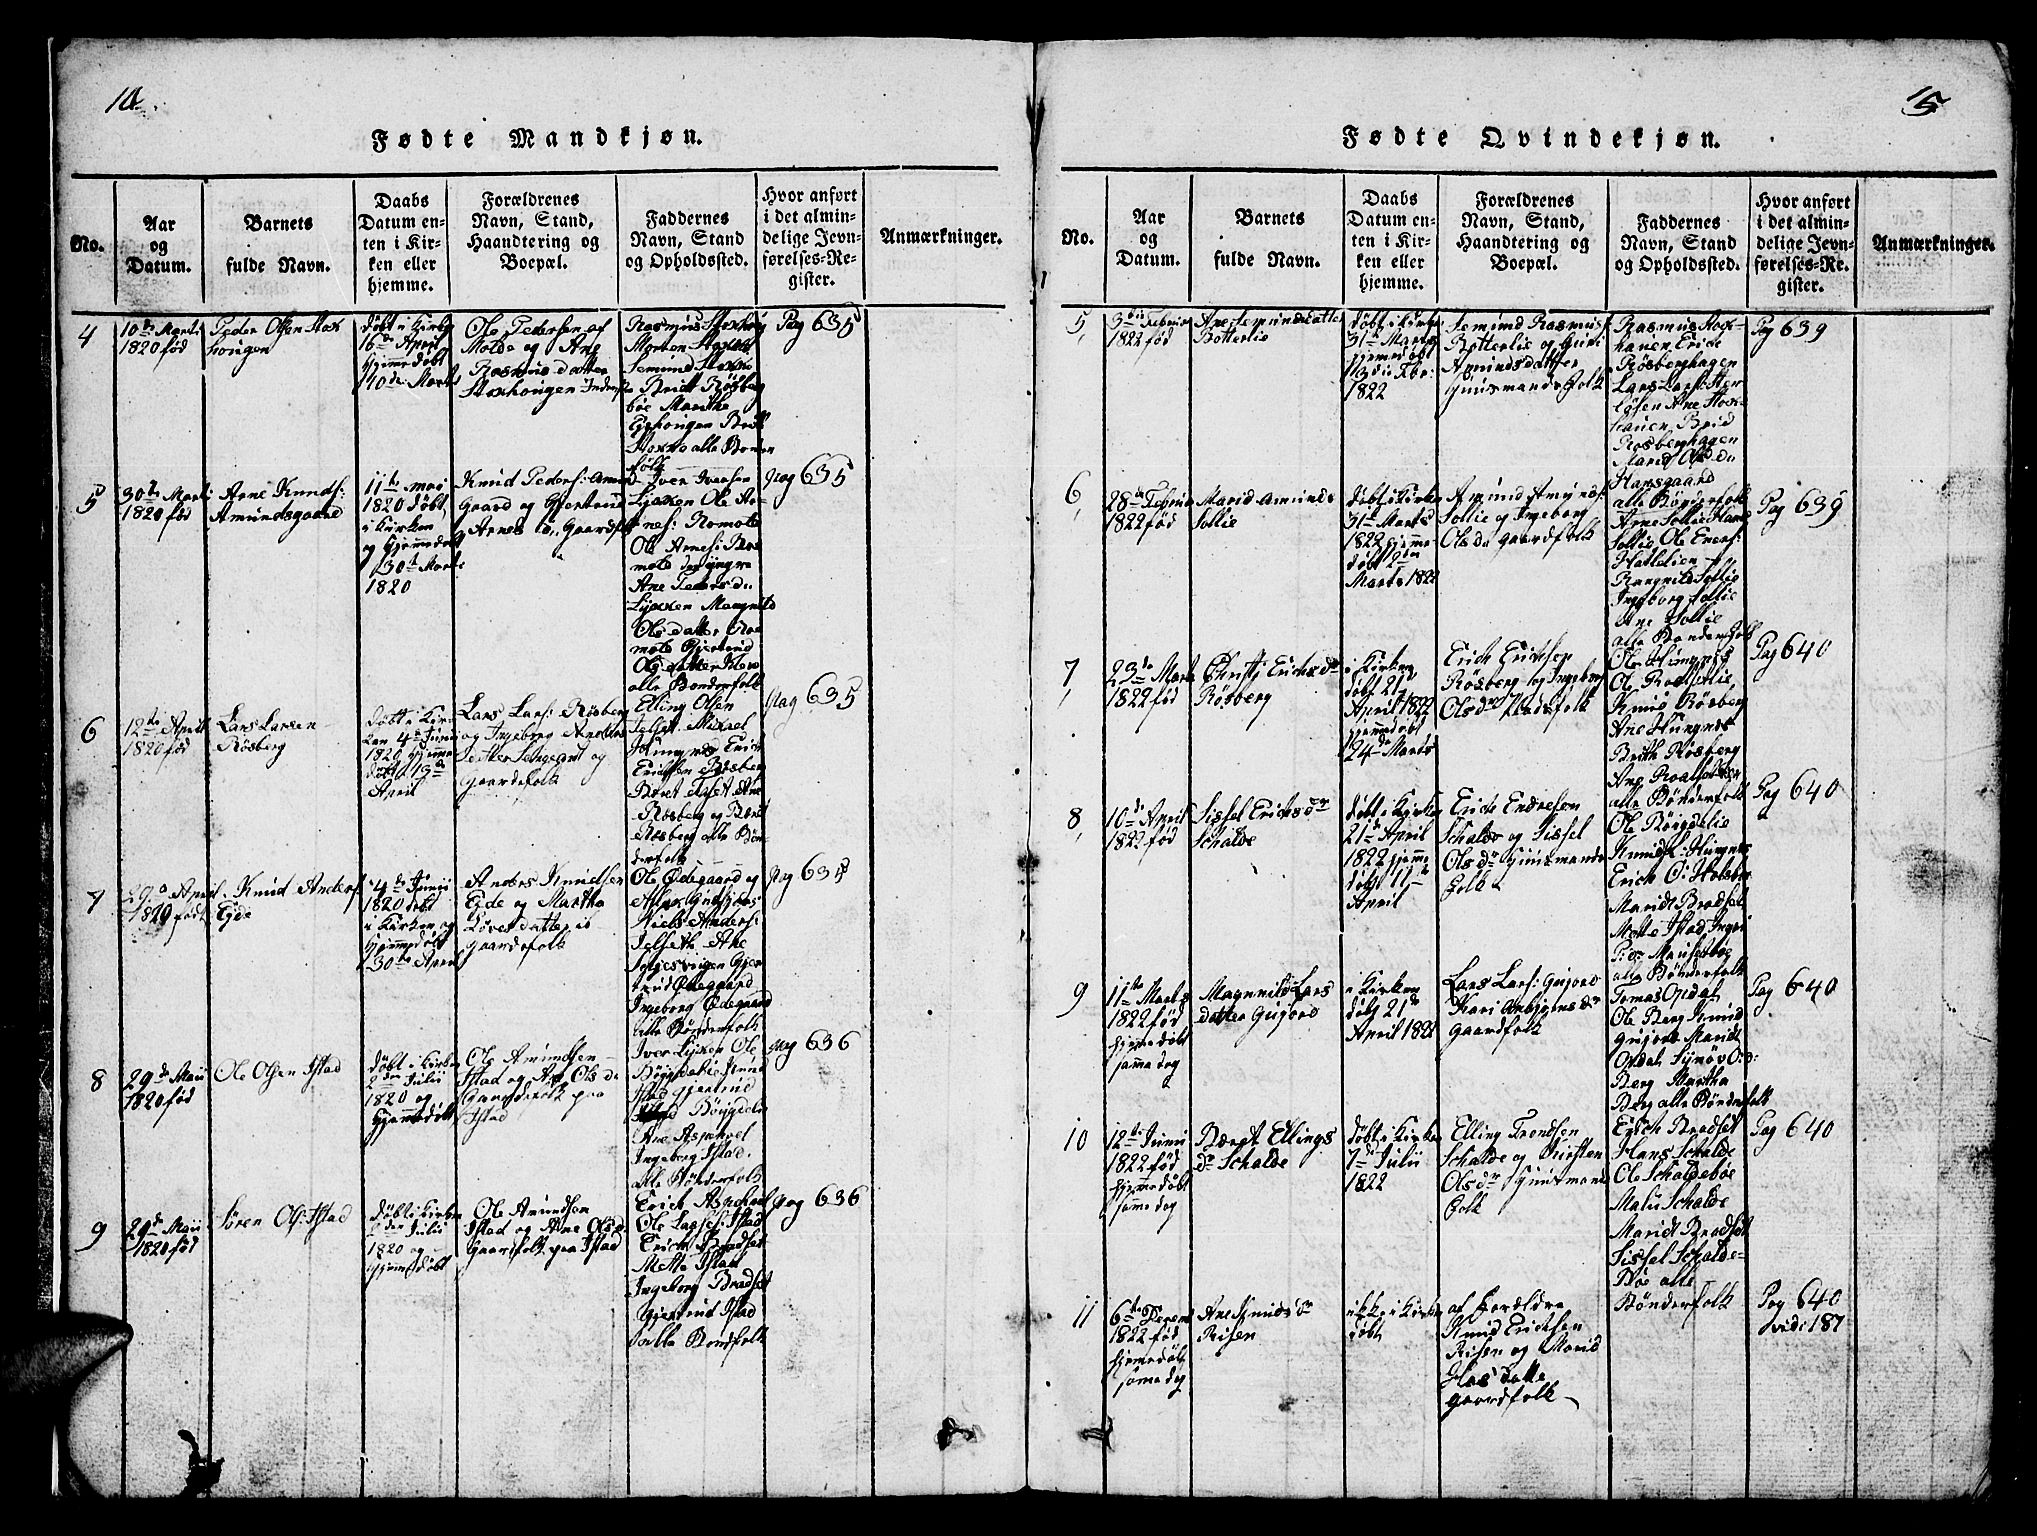 14
Fødte Mandkjøn.
No.
Aar
og
Datum.
Barnets
fulde Navn.
Daabs
Datum en-
ten i Kir-
ken eller
hjemme.
Forældrenes
Navn, Stand,
Haandtering og
Boepæl.
Faddernes
Navn, Stand
og Opholdssted.
Hvor anført
i det almin-
delige Jevn-
førelses-Re-
gister.
Anmærkninger.
4
10de Marti
1820 fød
Peder Olsen Stox
hougen
Døbt i Kirke
16de April
hjemme døbt
10de Marts
Ole Pedersen af
Molde og Ane
Rasmusdatter
Stoxhougen Inderste
Rasmus
Morten
Semund
Bridt Røsberg
bøe Marithe
alle Bønder
folk
Pag 635
5
30te Marti
1820 fød
Arne Knuds:
Amundsgaard
11te Mai
1820 døbt
i Kirken
og hjemmedøbt
30te Marts
1820
Knud Peders: Amun
Gaard og Gjertrud
Arnes d. Gaardfolk
Iver Iversen
Lyxken Ole Ar-
nes: Romole
Ole Arnes: Ro
mole den yngre
Ane Peders d.
Lyxken Magnild
Olsdatter Ro
mole Gjertrud
Olsdatter
alle Bønderfolk
Pag 635
6
12te April
1820 fød
Lars Larsen
Røsberg
Døbt i Kir
ken 4de Junii
1820 hjemme
døbt 13de
April
Lars Lars: Røsberg
og Ingeborg Anders
datter Sergeant og
Gaardefolk
Elling Olsen
Jelset Mikael
Hungnes Erick
Ericksen Røsberg
Beret Jelset Ane
Røsberg og Beret
Røsberg alle Bøn
derfolk
Pag 635
7
29de April
1820 født
Knud Anders:
Eide
4de Junii
1820 døbt
i Kirken og
hjemmedøbt
30te April
Anders Knudsen
Eide og Martha
Gaardefolk
Ole Ødegaard og
Niels Anders:
Jelseth Ane
Gjer
trud Ødegaard
Ingeborg Ødegaard
alle Bønderfolk
Pag 635
8
29de Maii
1820 fød
Ole Olsen Istad
døbt i Kirken
2den Julii
1820 og
hjemmedøbt
Ole Amundsen
Istad og Ane Ols d.
Gaardefolk paa
Istad
Iver Lyxken Ole
Bøygdelie Knud
Istad Gjertrud
Bøygdelie
Ane Aspehoel
Ingeborg Istad.
alle Bønderfolk
Pag 636
9
29de Maii
1820 fød
Søren Ols: Istad
Døbt i Kirken
2den Julii
1820 og
hjemmedøbt
Ole Amundsen
Istad og Ane Olsd.
Gaardfolk paa Istad
Erick Aspehoel
Ole Lasses: Istad
Erick Bradset
Mette Istad
Ingeborg Bradset
Gjertrud Istad
alle Bondfolk
Pag 636
15
Fødte Qvindekjøn.
No.
Aar
og
Datum.
Barnets
fulde Navn.
Daabs
Datum en-
ten i Kir-
ken eller
hjemme.
Forældrenes
Navn, Stand,
Haandtering og
Boepæl.
Faddernes
Navn, Stand
og Opholdssted.
Hvor anført
i det almin-
delige Jevn-
førelses-Re-
gister.
Anmærkninger.
5
3die Februar
1822 fød
Ane Semundsdatter
Botterlie
Døbt i Kirke
31te Marts
hjemmedøbt
13die Febr:
1822
Semund Rasmus:
Botterlie og Guri
Amundsdatter
Huusmands Folk
Rasmus Stox-
houen Erick
Røsberghagen
Lars Lars:
Ane Stox-
houen Brid
Røsberghagen
Marid Olsd.
Hamsgaard
alle Bønderfolk
Pag 639
6
28de Februar
1822 fød
Marid Amunds
Sollie
Døbt i Kirken
31te Marts
1822 hjemme
døbt 2den
Marts 1822
Amund Amunds:
Sollie og Ingeborg
Ols d. Gaardfolk
Arne Sollie Hans
Sollie Ole Eners:
Hattelien
Rangnild Sollie
Ingeborg Sollie
Ane Sollie
alle Bønderfolk
Pag 639
7
23de Marts
1822 fød
Christi Ericks dr
Røsberg
i Kirken
døbt 21de
April 1822
hjemmedøbt
24de Marts
Erick Ericksen
Røsberg og Ingeborg
Olsdr Bondefolk
Ole Hungnes
Ole Roaldselie
Knud Røsberg
Ane Hungnes
Brith Røsberg
Ane
alle Bønderfolk
Pag 640
8
10de April
1822 fød
Sissel Ericks dr
Schalde
Døbt i Kirken
21de April
1822 hjemme
døbt 11te
April
Erick Endresen
Schalde og Sissel
Ols dr Huusmands
Folk
Ole Bøygdelie
Knud K: Hungnes
Erick O: Holsbøe
Maridt Bradset
Mette Istad Ingri
P: dr Mausetbøe
alle Bønderfolk
Pag 640
9
11te Marts
1822 fød
hjemedøbt
samme dag
Magnnild Lars
datter Gujord
i Kirken
døbt 21de
April 1822
Lars Lars: Gujord
Kari Asbjørns dr
Gaardfolk
Tomas Opdal
Ole Berg Knud
Gujord Maridt
Opdal Synøv O: d:
Berg Martha
Berg alle Bønderfolk
Pag 640
10
12te Junii
1822 fød
hjemedøbt
samme dag
Beret Ellings
dr Schalde
Døbt i Kirken
7de Julii
1822
Elling Trondsen
Schalde og Kirsten
Olsdr Huusmands
Folk
Erich Bradset
Hans Schalde
Ole Schaldebøe
Malu Schalde
Maridt Bradset
Sissel Schalde-
bøe alle
Bønderfolk
Pag 640
11
6te Decem
1822 fød
hjemedøbt
samme dag
Ane Knuds dr
Risen
ikke i Kirken
døbt
af Forældre
Knud Ericksen
Risen og Marid
Hansdatter
Gaardfolk
Pag 640
vide 187